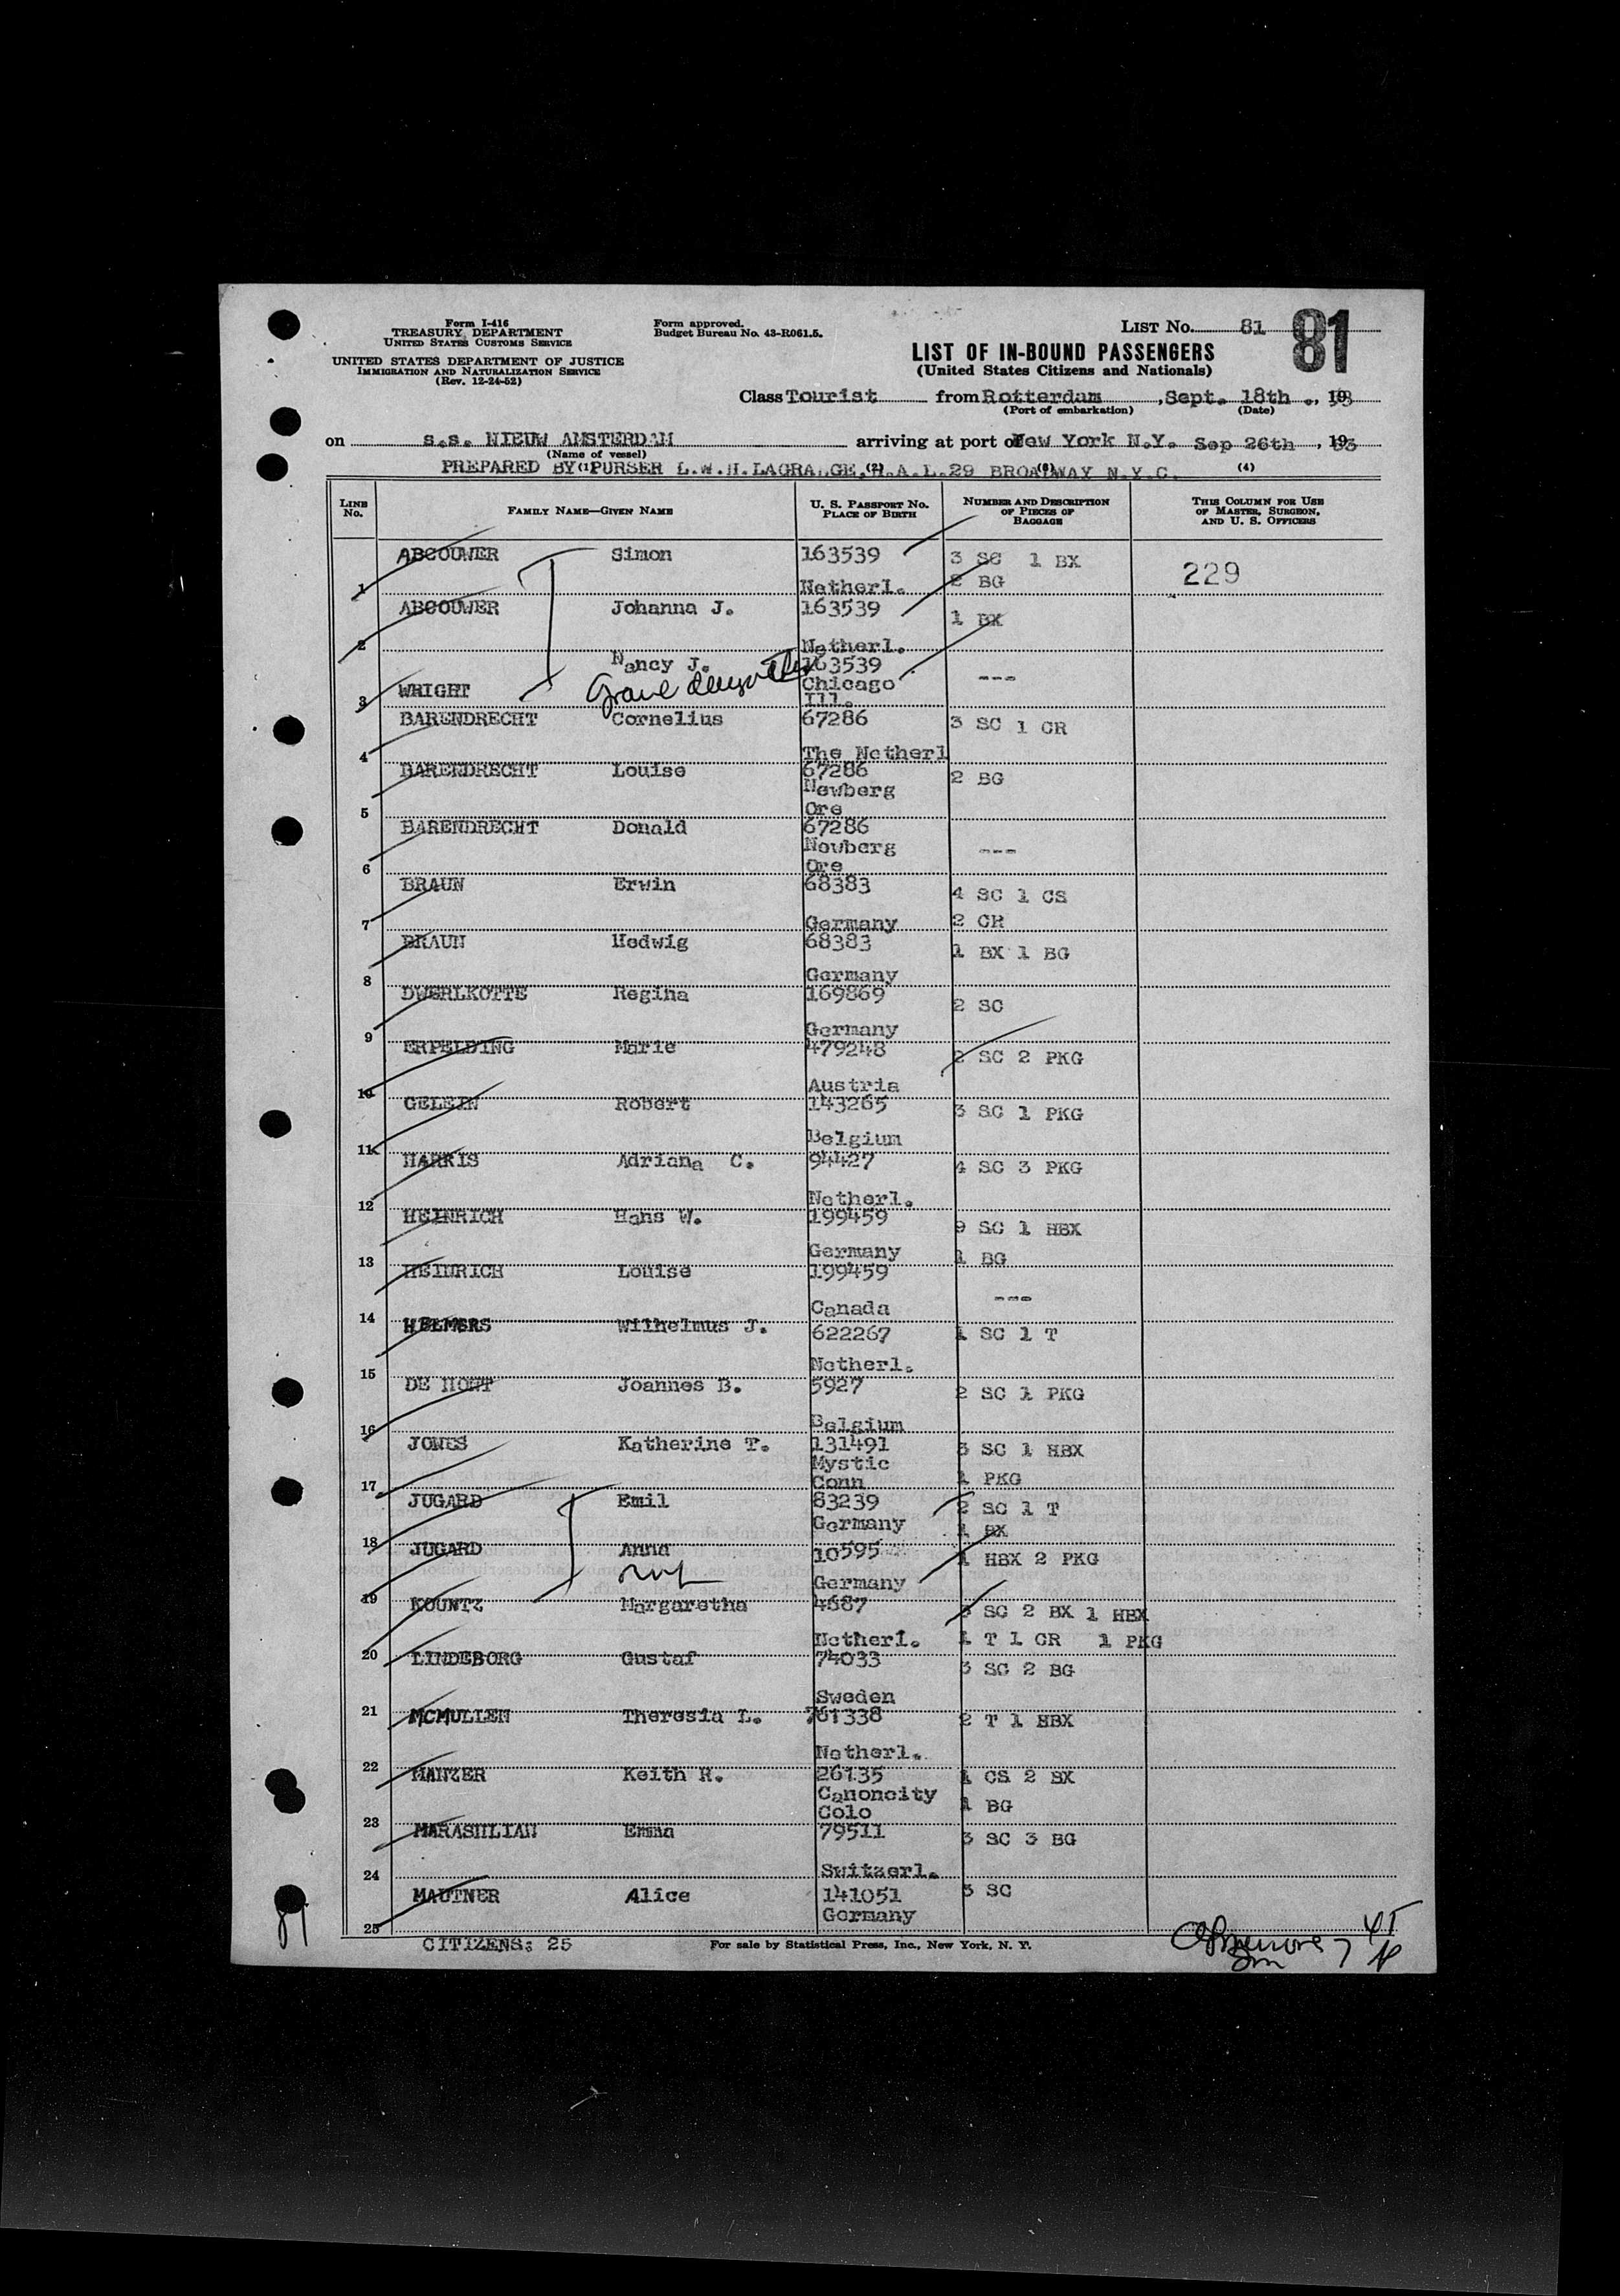 Form I-416
TREASURY DEPARTMENT
UNITED STATES CUSTOMS SERVICE
UNITED STATES DEPARTMENT OF JUSTICE
IMMIGRATION AND NATURALIZATION SERVICE
(Rev. 12-24-52)
Form approved.
Budget Bureau No. 43-R061.5.
LIST No. 81 81
LIST OF IN-BOUND PASSENGERS
(United States Citizens and Nationals)
Class Tourist from Rotterdam, Sept. 18th, 1953
(Port of embarkation) (Date)
on s.s. NIEUW AMSTERDAM arriving at port of New York N.Y. Sep 26th, 1953
(Name of vessel)
PREPARED BY PURSER L.W.H. LAGRANGE, H.A.L. 29 BROADWAY N.Y.C.
(1) (2) (3) (4)
LINE No. FAMILY NAME—GIVEN NAME U. S. PASSPORT No. PLACE OF BIRTH NUMBER AND DESCRIPTION OF PIECES OF BAGGAGE THIS COLUMN FOR USE OF MASTER, SURGEON, AND U. S. OFFICERS
1 ABCOUWER Simon 163539 3 SC 1 BX
Netherl. 2 BG 229
2 ABCOUWER Johanna J. 163539 1 BX
Netherl.
3 WRIGHT Nancy J. 163539 ---
Grand daughter Chicago
Ill.
4 BARENDRECHT Cornelius 67286 3 SC 1 CR
The Netherl
5 BARENDRECHT Louise 67286 2 BG
Newberg
Ore
6 BARENDRECHT Donald 67286
Newberg ---
Ore
7 BRAUN Erwin 68383 4 SC 1 CS
Germany 2 CR
8 BRAUN Hedwig 68383 1 BX 1 BG
Germany
9 DWERLKOTTE Regina 169869 2 SC
Germany
10 ERPELDING Marie 479248 2 SC 2 PKG
Austria
11 GELEJN Robert 143265 3 SC 1 PKG
Belgium
12 HARRIS Adriana C. 94427 4 SC 3 PKG
Netherl.
13 HEINRICH Hans W. 199459 9 SC 1 HBX
Germany 1 BG
14 HEINRICH Louise 199459
Canada ---
15 HELMERS Wilhelmus J. 622267 1 SC 1 T
Netherl.
16 DE HONT Joannes B. 5927 2 SC 1 PKG
Belgium
17 JONES Katherine T. 131491 3 SC 1 HBX
Mystic
Conn 1 PKG
18 JUGARD Emil 83239 2 SC 1 T
Germany 1 BX
19 JUGARD Anna 10595 1 HBX 2 PKG
Germany
20 KOUNTZ Margaretha 4687 3 SC 2 BX 1 HBX
Netherl. 1 T 1 CR 1 PKG
21 LINDEBORG Gustaf 74033 3 SC 2 BG
Sweden
22 MCMULLEN Theresia L. 761338 2 T 1 HBX
Netherl.
23 MANZER Keith R. 26135 1 CS 2 BX
Canoncity
Colo 1 BG
24 MARASHLIAN Emma 79511 3 SC 3 BG
Switzerl.
25 MAUTNER Alice 141051 3 SC
Germany
81
CITIZENS: 25
For sale by Statistical Press, Inc., New York, N. Y.